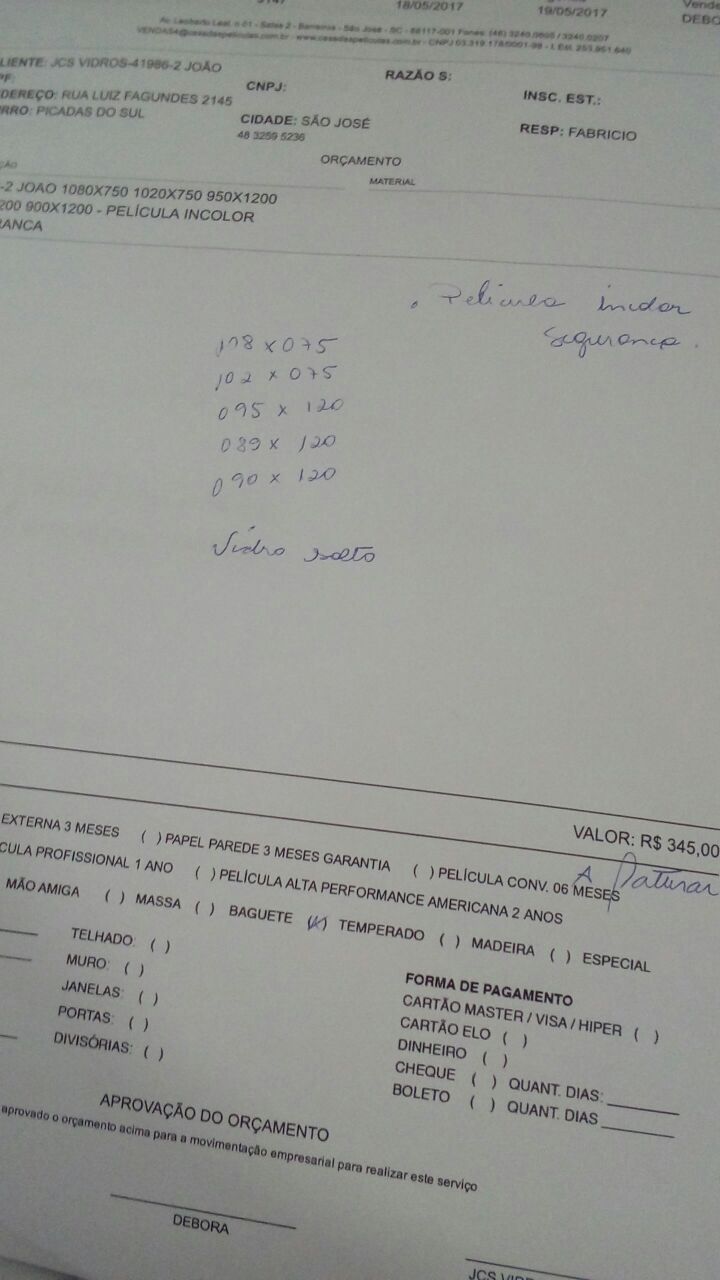 3147
18/05/2017
19/05/2017
Vende
DEBO
Av. Leoberto Leal, n 01 - Salas 2 - Barreiros - São José - SC - 88117-001 Fones: (48) 3240.0605 / 3240.0207
VENDAS4@casadaspeliculas.com.br - www.casadaspeliculas.com.br - CNPJ 03.319.178/0001-98 - I. Est. 253.951.640
LIENTE: JCS VIDROS-41986-2 JOÃO
PF:
CNPJ:
RAZÃO S:
INSC. EST.:
DEREÇO: RUA LUIZ FAGUNDES 2145
RRO: PICADAS DO SUL
CIDADE: SÃO JOSÉ
48 3259 5236
RESP: FABRICIO
ORÇAMENTO
ÇÃO
MATERIAL
-2 JOAO 1080X750 1020X750 950X1200
200 900X1200 - PELÍCULA INCOLOR
RANCA
. Pelicula incolor
segurança.
108 x 075
102 x 075
095 x 120
089 x 120
090 x 120
Vidro solto
VALOR: R$ 345,00
A Faturar
EXTERNA 3 MESES ( ) PAPEL PAREDE 3 MESES GARANTIA ( ) PELÍCULA CONV. 06 MESES
CULA PROFISSIONAL 1 ANO ( ) PELÍCULA ALTA PERFORMANCE AMERICANA 2 ANOS
MÃO AMIGA ( ) MASSA ( ) BAGUETE (X) TEMPERADO ( ) MADEIRA ( ) ESPECIAL
TELHADO: ( )
MURO: ( )
JANELAS: ( )
PORTAS: ( )
DIVISÓRIAS: ( )
FORMA DE PAGAMENTO
CARTÃO MASTER / VISA / HIPER ( )
CARTÃO ELO ( )
DINHEIRO ( )
CHEQUE ( ) QUANT. DIAS:
BOLETO ( ) QUANT. DIAS
APROVAÇÃO DO ORÇAMENTO
aprovado o orçamento acima para a movimentação empresarial para realizar este serviço
DEBORA
JCS VIDR